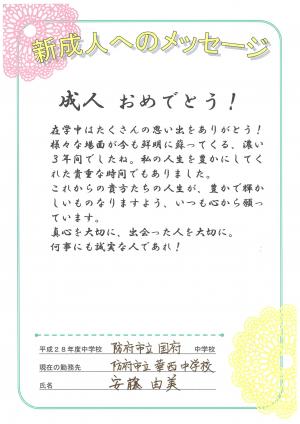 新成人へのメッセージ
成人 おめでとう！
在学中はたくさんの思い出をありがとう！
様々な場面が今も鮮明に蘇ってくる、濃い
３年間でしたね。私の人生を豊かにしてく
れた貴重な時間でもありました。
これからの貴方たちの人生が、豊かで輝か
しいものなりますよう、いつも心から願っ
ています。
真心を大切に、出会った人を大切に。
何事にも誠実な人であれ！
平成２８年度中学校 防府市立 国府 中学校
現在の勤務先 防府市立 華西中学校
氏名 安藤 由美